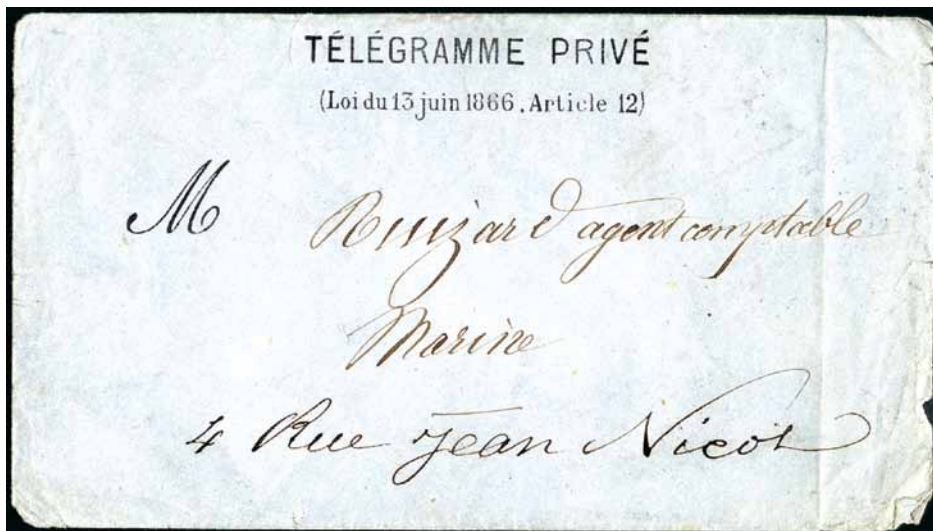 TÉLÉGRAMME PRIVÉ
(Loi du 13 juin 1866. Article 12)
M agent comptable
Marine
4 Rue Jean Nicot